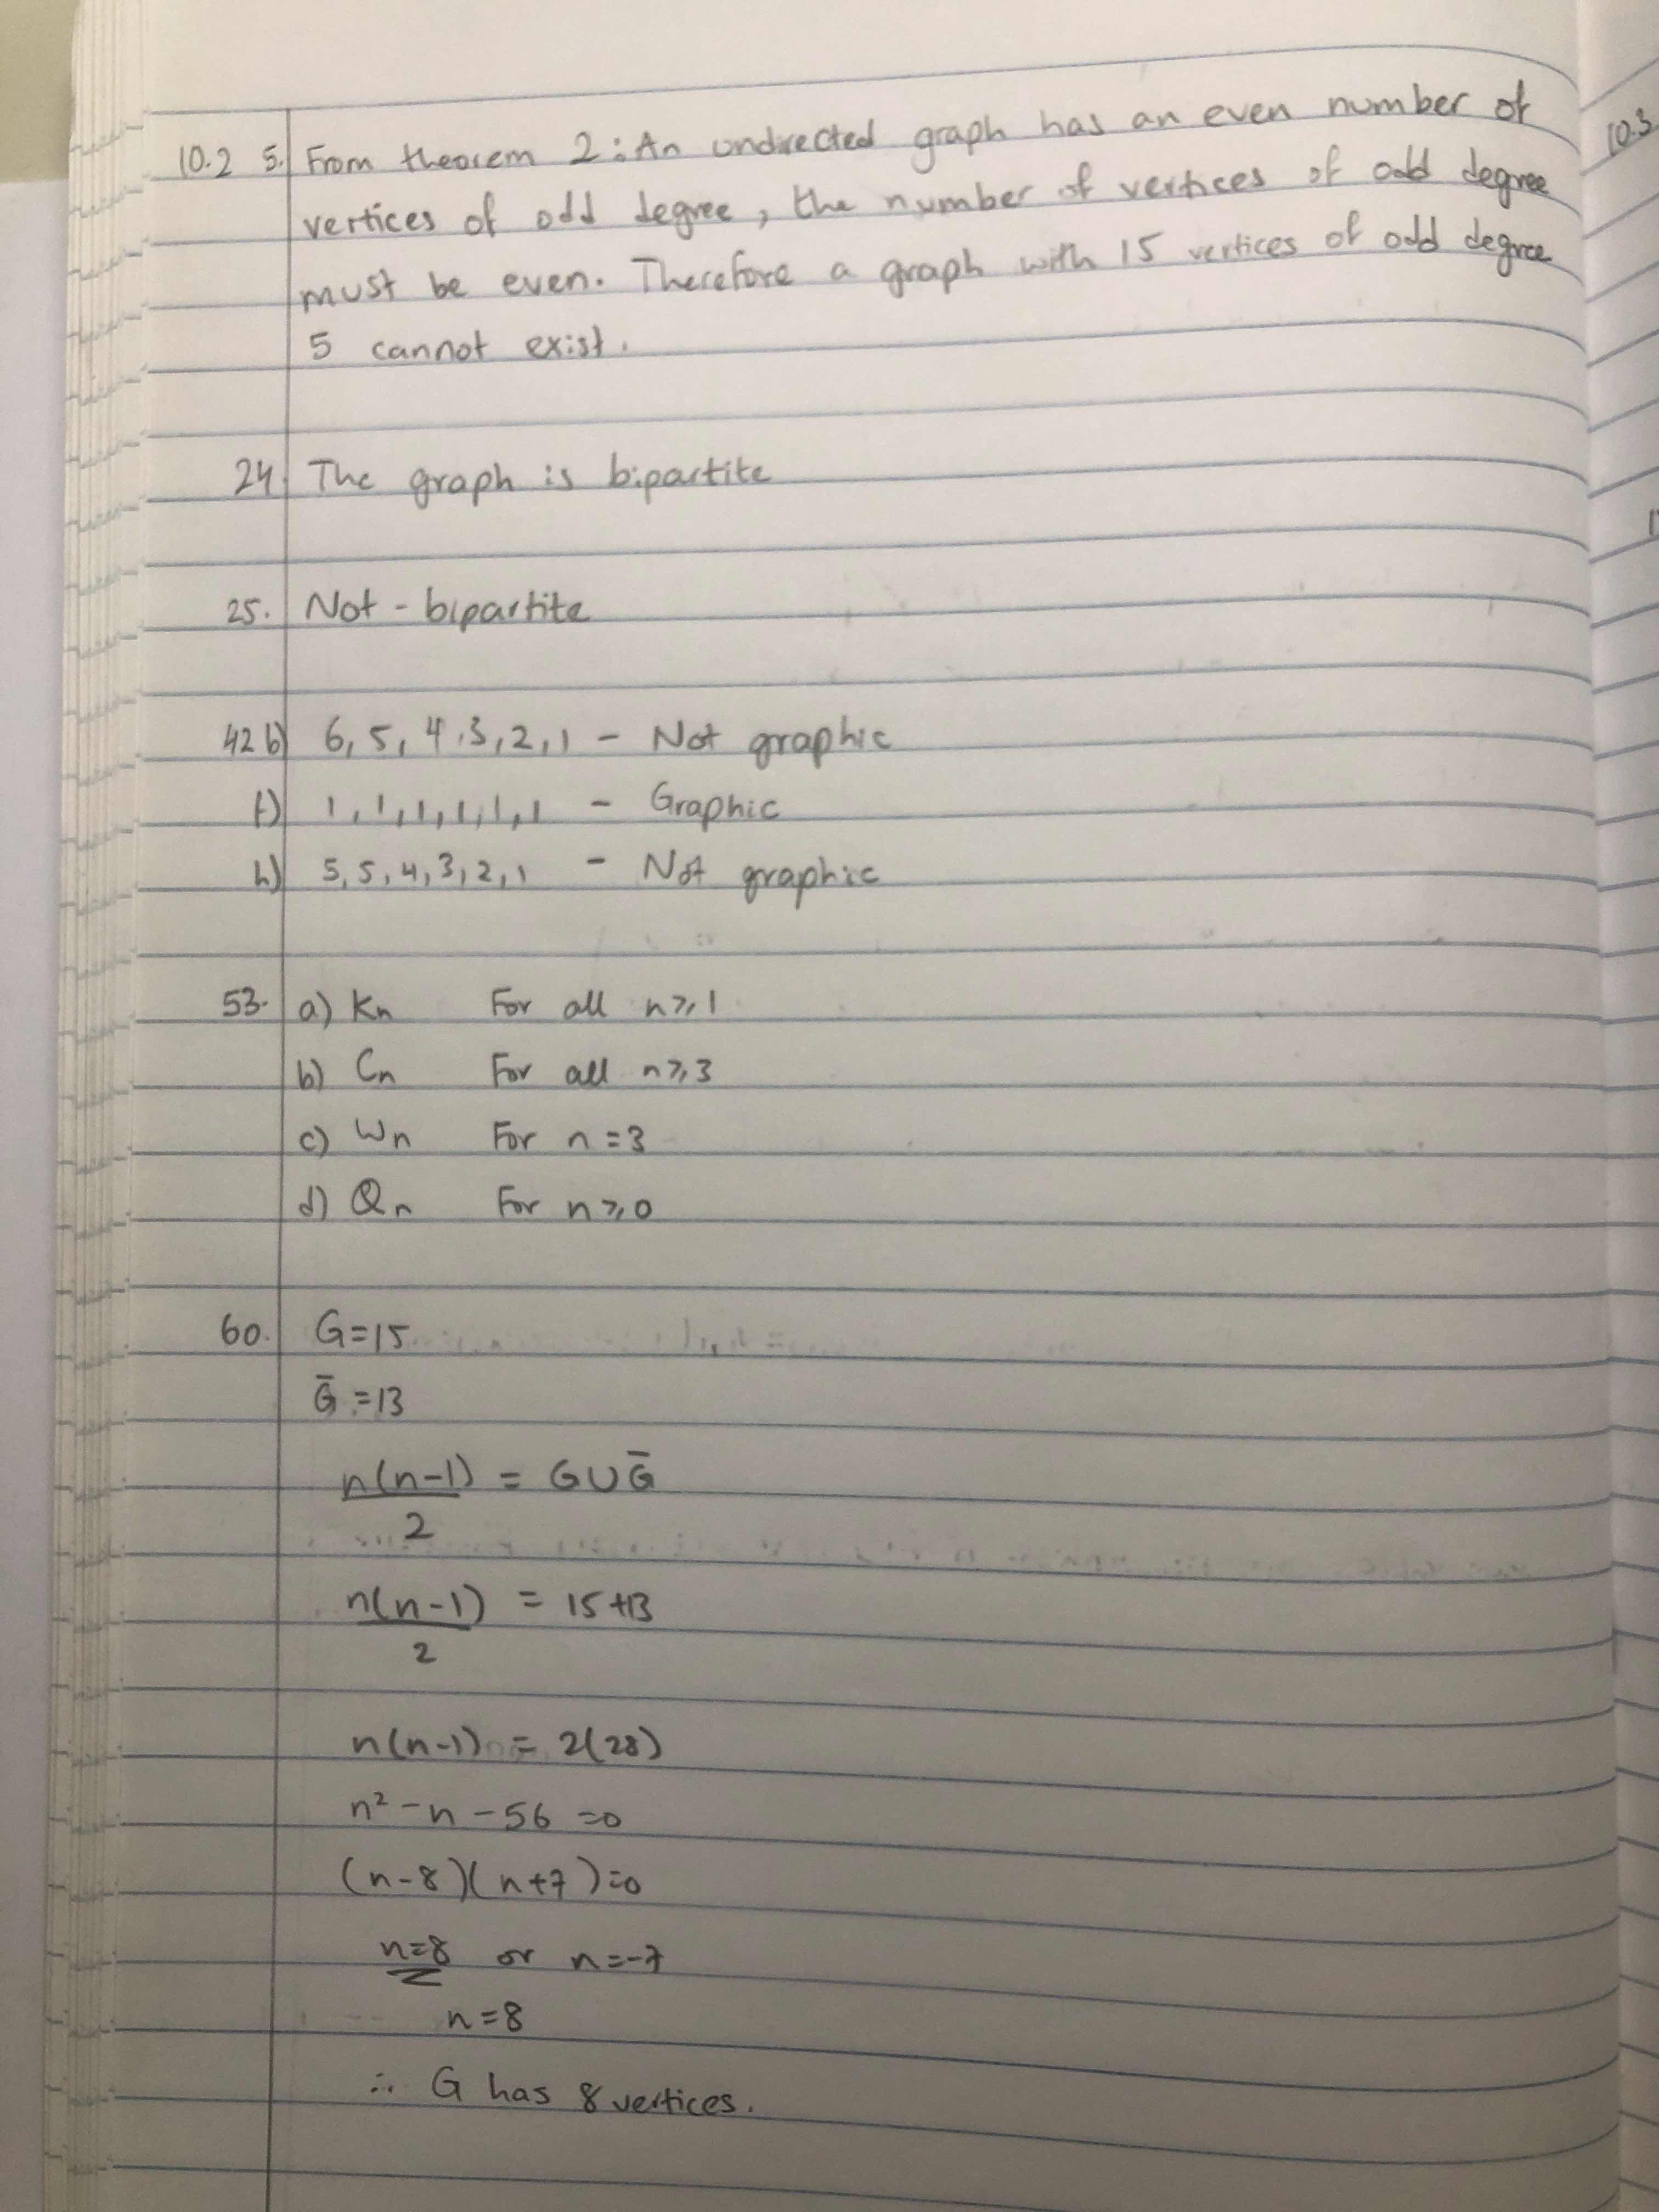 10.2 5. From theorem 2: An undirected graph has an even number of
vertices of odd degree, the number of vertices of odd degree
must be even. Therefore a graph with 15 vertices of odd degree
5 cannot exist.
24. The graph is bipartite
25. Not-bipartite
42 b) 6, 5, 4, 3, 2, 1 - Not graphic
f) 1, 1, 1, 1, 1, 1 - Graphic
h) 5, 5, 4, 3, 2, 1 - Not graphic
53. a) Kn For all n ≥ 1
b) Cn For all n ≥ 3
c) Wn For n = 3
d) Qn For n ≥ 0
60. G = 15
Ḡ = 13
n(n-1)/2 = G ∪ Ḡ
n(n-1)/2 = 15+13
n(n-1) = 2(28)
n² - n - 56 = 0
(n-8)(n+7) = 0
n=8 or n=-7
n=8
∴ G has 8 vertices.
10.3